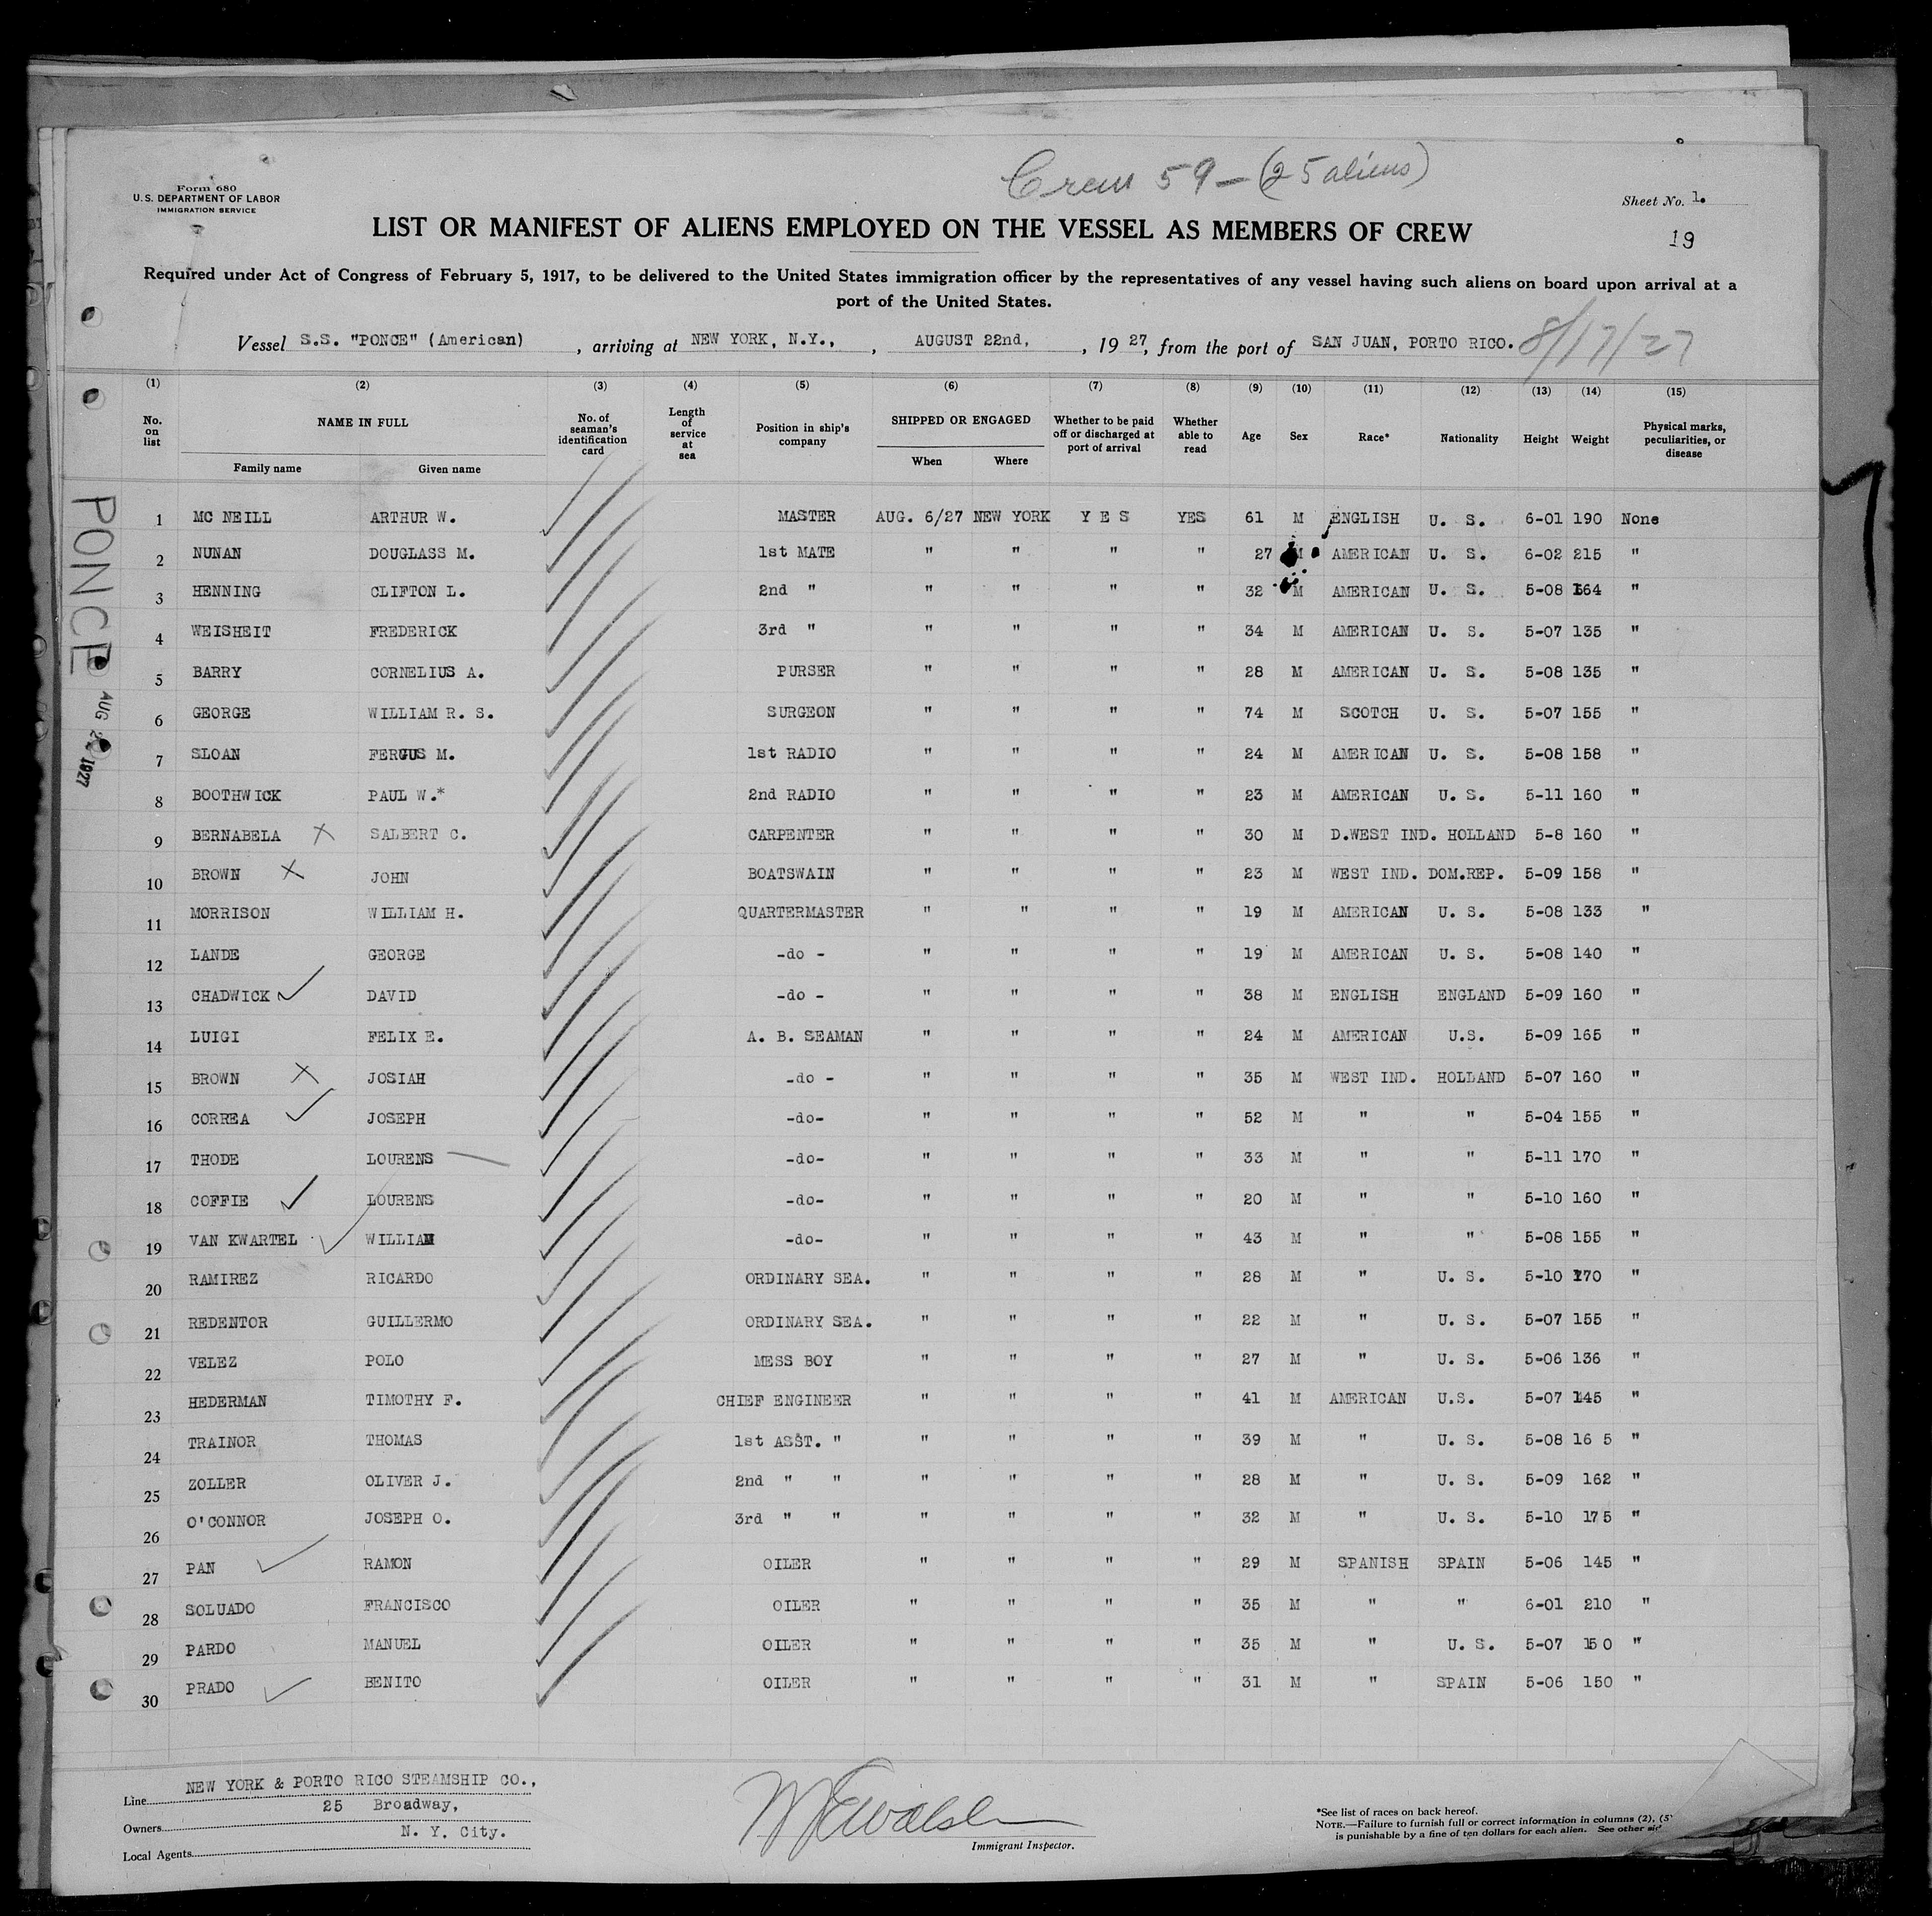 Crew 59 - (25 aliens)
Form 680
U. S. DEPARTMENT OF LABOR
IMMIGRATION SERVICE
Sheet No. 1.
LIST OR MANIFEST OF ALIENS EMPLOYED ON THE VESSEL AS MEMBERS OF CREW
19
Required under Act of Congress of February 5, 1917, to be delivered to the United States immigration officer by the representatives of any vessel having such aliens on board upon arrival at a
port of the United States.
Vessel S.S. "PONCE" (American) , arriving at NEW YORK, N.Y., , AUGUST 22nd, , 19 27, from the port of SAN JUAN, PORTO RICO. 8/17/27
(1) (2) (3) (4) (5) (6) (7) (8) (9) (10) (11) (12) (13) (14) (15)
No. on list NAME IN FULL Family name Given name No. of seaman's identification card Length of service at sea Position in ship's company SHIPPED OR ENGAGED When Where Whether to be paid off or discharged at port of arrival Whether able to read Age Sex Race* Nationality Height Weight Physical marks, peculiarities, or disease
1 MC NEILL ARTHUR W. MASTER AUG. 6/27 NEW YORK Y E S YES 61 M ENGLISH U. S. 6-01 190 None
2 NUNAN DOUGLASS M. 1st MATE " " " " 27 M AMERICAN U. S. 6-02 215 "
3 HENNING CLIFTON L. 2nd " " " " " 32 M AMERICAN U. S. 5-08 164 "
4 WEISHEIT FREDERICK 3rd " " " " " 34 M AMERICAN U. S. 5-07 135 "
5 BARRY CORNELIUS A. PURSER " " " " 28 M AMERICAN U. S. 5-08 135 "
6 GEORGE WILLIAM R. S. SURGEON " " " " 74 M SCOTCH U. S. 5-07 155 "
7 SLOAN FERGUS M. 1st RADIO " " " " 24 M AMERICAN U. S. 5-08 158 "
8 BOOTHWICK PAUL W.* 2nd RADIO " " " " 23 M AMERICAN U. S. 5-11 160 "
9 BERNABELA X SALBERT C. CARPENTER " " " " 30 M D.WEST IND. HOLLAND 5-8 160 "
10 BROWN X JOHN BOATSWAIN " " " " 23 M WEST IND. DOM.REP. 5-09 158 "
11 MORRISON WILLIAM H. QUARTERMASTER " " " " 19 M AMERICAN U. S. 5-08 133 "
12 LANDE GEORGE -do - " " " " 19 M AMERICAN U. S. 5-08 140 "
13 CHADWICK ✓ DAVID -do - " " " " 38 M ENGLISH ENGLAND 5-09 160 "
14 LUIGI FELIX E. A. B. SEAMAN " " " " 24 M AMERICAN U.S. 5-09 165 "
15 BROWN X JOSIAH -do - " " " " 35 M WEST IND. HOLLAND 5-07 160 "
16 CORREA ✓ JOSEPH -do- " " " " 52 M " " 5-04 155 "
17 THODE LOURENS -do- " " " " 33 M " " 5-11 170 "
18 COFFIE ✓ LOURENS -do- " " " " 20 M " " 5-10 160 "
19 VAN KWARTEL ✓ WILLIAM -do- " " " " 43 M " " 5-08 155 "
20 RAMIREZ RICARDO ORDINARY SEA. " " " " 28 M " U. S. 5-10 170 "
21 REDENTOR GUILLERMO ORDINARY SEA. " " " " 22 M " U. S. 5-07 155 "
22 VELEZ POLO MESS BOY " " " " 27 M " U. S. 5-06 136 "
23 HEDERMAN TIMOTHY F. CHIEF ENGINEER " " " " 41 M AMERICAN U.S. 5-07 145 "
24 TRAINOR THOMAS 1st ASST. " " " " " 39 M " U. S. 5-08 16 5 "
25 ZOLLER OLIVER J. 2nd " " " " " " 28 M " U. S. 5-09 162 "
26 O'CONNOR JOSEPH O. 3rd " " " " " " 32 M " U. S. 5-10 175 "
27 PAN ✓ RAMON OILER " " " " 29 M SPANISH SPAIN 5-06 145 "
28 SOLUADO FRANCISCO OILER " " " " 35 M " " 6-01 210 "
29 PARDO MANUEL OILER " " " " 35 M " U. S. 5-07 150 "
30 PRADO ✓ BENITO OILER " " " " 31 M " SPAIN 5-06 150 "
PONCE
AUG 1927
Line NEW YORK & PORTO RICO STEAMSHIP CO.,
Owners 25 Broadway,
Local Agents N. Y. City.
Immigrant Inspector.
*See list of races on back hereof.
NOTE.—Failure to furnish full or correct information in columns (2), (5)
is punishable by a fine of ten dollars for each alien. See other